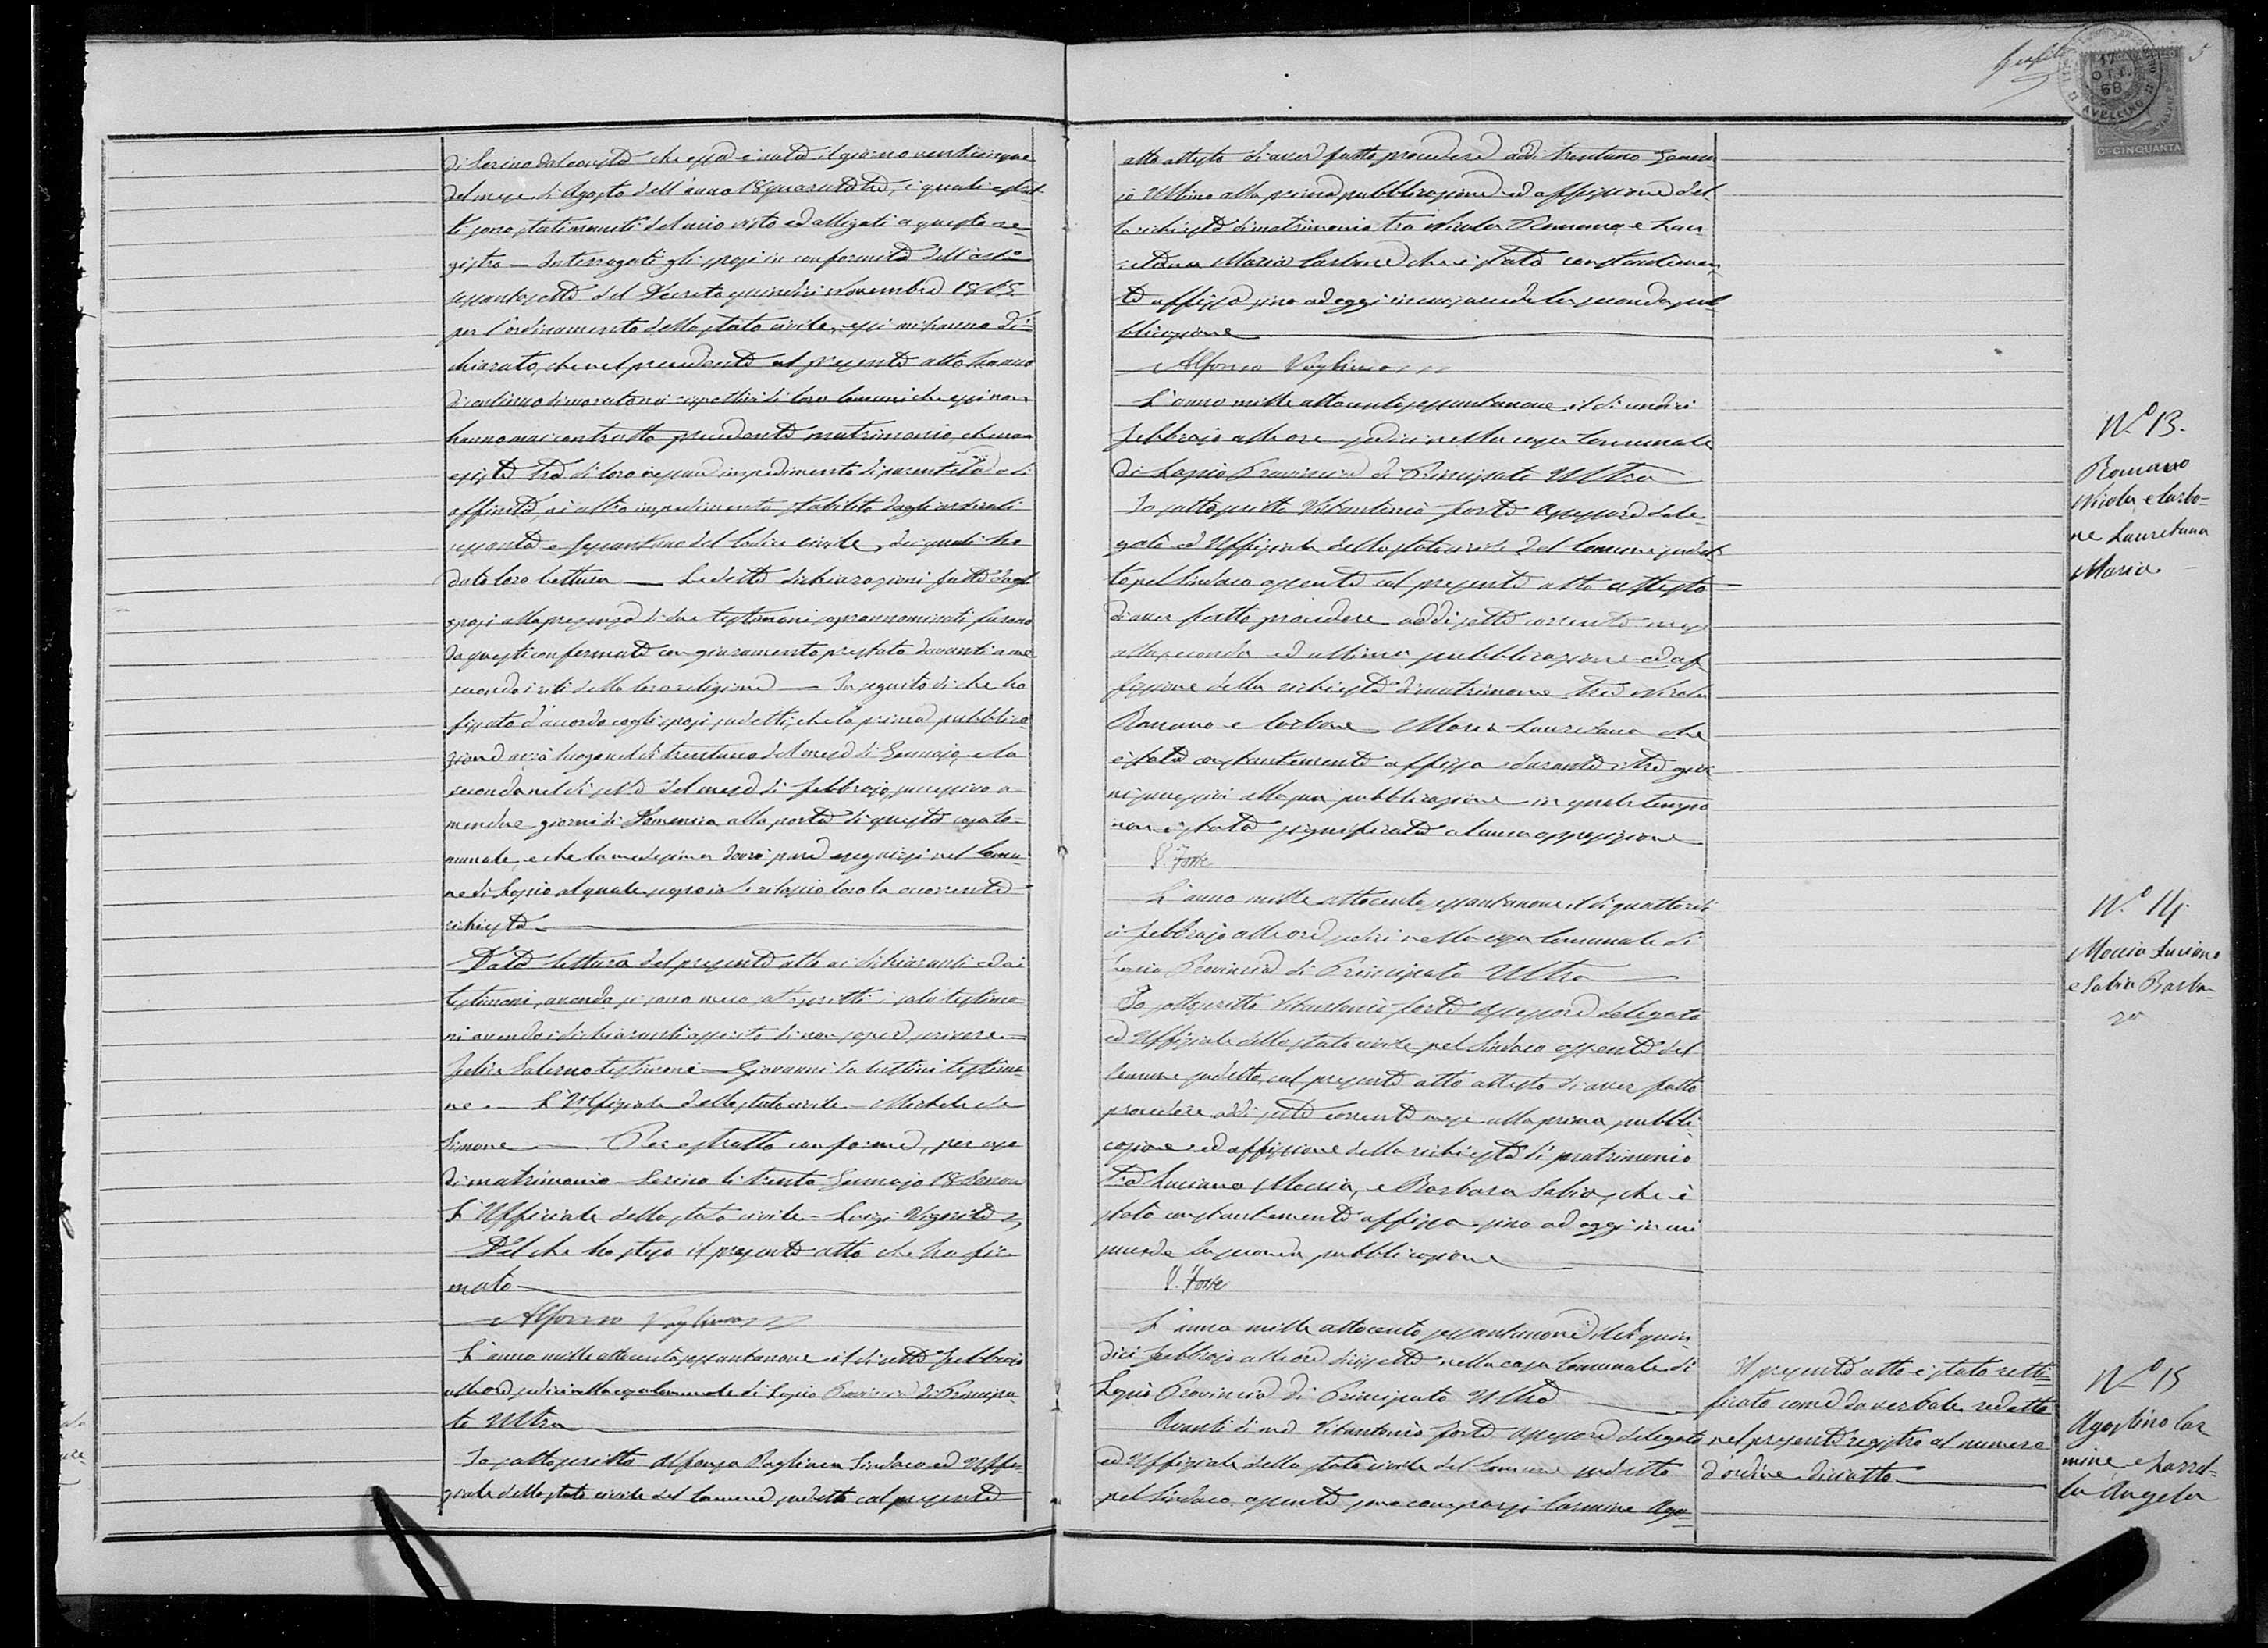 di Serino dal consta che essa è nata il giorno venticinque
del mese di Agosto dell'anno 18quarantatre, i quali estrat-
ti sono stati muniti del mio visto ed allegati a questo re-
gistro — Interrogati gli sposi in conformità dell'art.o
sessantasette del Decreto quindici Novembre 1865
per l'ordinamento dello stato civile, essi mi hanno di-
chiarato, che nel precedente al presente atto hanno
di continuo dimorato nei rispettivi di loro Comuni che essi non
hanno mai contratto precedente matrimonio, che non
esiste tra di loro nessun impedimento di parentela o di
affinità, né altro impedimento stabilito dagli articoli
sessanta e sessantuno del Codice civile, dei quali ho
dato loro lettura — Le dette dichiarazioni fatte dagli
sposi alla presenza di due testimoni soprannominati furono
da questi confermate con giuramento prestato davanti a me
secondo i riti della loro religione — In seguito di che ho
fissato d'accordo cogli sposi sudetti, che la prima pubblica-
zione avrà luogo nel dì trentuno del mese di Gennajo, e la
seconda nel dì sette del mese di febbrajo successivo a-
mendue giorni di Domenica alla porta di questa casa co-
munale, e che la medesima dovrà pure eseguirsi nel Comu-
ne di Lapio al quale si rilascia loro la occorrente
richiesta
Data lettura del presente atto ai dichiaranti ed ai
testimoni, avendo si sono meco sottoscritti i soli testimo-
ni avendo i dichiaranti asserito di non sapere scrivere =
Felice Salerno testimone — Giovanni testimo-
ne — L'Uffiziale dello stato civile — Michele de
Simone — Per estratto conforme, per uso
di matrimonio — Serino li trenta Gennajo
L'Ufficiale dello stato civile — Luigi
Del che ho steso il presente atto che ho fir-
mato
Alfonso
L'anno mille ottocento sessantanove il dì sette febbrajo
alle ore sedici nella casa comunale di Lapio Provincia di Principa-
to Ultra
Io sottoscritto Alfonso Sindaco ed Uffi-
ziale dello stato civile del Comune sudetto col presente
5
17
OTT.
68
AVELLINO
Cs CINQUANTA
atto attesto di aver fatto procedere addì trentuno Genna-
jo ultimo alla prima pubblicazione ed affissione del-
la richiesta di matrimonio tra Nicola Romano, e Lau-
retana Maria Carbone che è stata constantemen-
te affissa sino ad oggi in cui succede la seconda pub-
blicazione
Alfonso
L'anno mille ottocento sessantanove il dì undici
febbrajo alle ore sedici nella casa Comunale
di Lapio Provincia di Principato Ultra
Io sottoscritto Vitantonio Forte Assessore dele-
gato ed Uffiziale dello stato civile del Comune sudet-
to pel Sindaco assente col presente atto attesto
di aver fatto procedere addì sette corrente mese
alla seconda ed ultima pubblicazione ed af-
fissione della richiesta di matrimonio tra Nicola
Romano e Carbone Maria Lauretana che
è stata constantemente affissa durante i tre gior-
ni successivi alla sua pubblicazione in qual tempo
non è stata significata alcuna opposizione
V. Forte
L'anno mille ottocento sessantanove il dì quattordi-
ci febbrajo alle ore sedici nella casa Comunale di
Lapio Provincia di Principato Ultra
Io sottoscritto Vitantonio Forte Assessore delegato
ed Uffiziale dello stato civile pel Sindaco assente del
Comune sudetto, col presente atto attesto di aver fatto
procedere addì sette corrente mese alla prima pubbli-
cazione ed affissione della richiesta di matrimonio
tra Luciano Moccia, e Barbara Sabia, che è
stata constantemente affissa sino ad oggi in cui
succede la seconda pubblicazione
V. Forte
L'anno mille ottocento sessantanove il dì quin-
dici febbrajo alle ore diecisette nella casa Comunale di
Lapio Provincia di Principato Ultra
Avanti di me Vitantonio Forte Assessore delegato
ed Uffiziale dello stato civile del Comune sudetto
pel Sindaco assente sono comparsi Carmine Ago-
Il presente atto è stato retti-
ficato come da verbale redatto
nel presente registro al numero
d'ordine diciotto
N.o 13.
Romano
Nicola, e Carbo-
ne Lauretana
Maria
N.o 14
Moccia Luciano
e Sabia Barba-
ra
N.o 15
Agostino Car
mine, e
la Angela